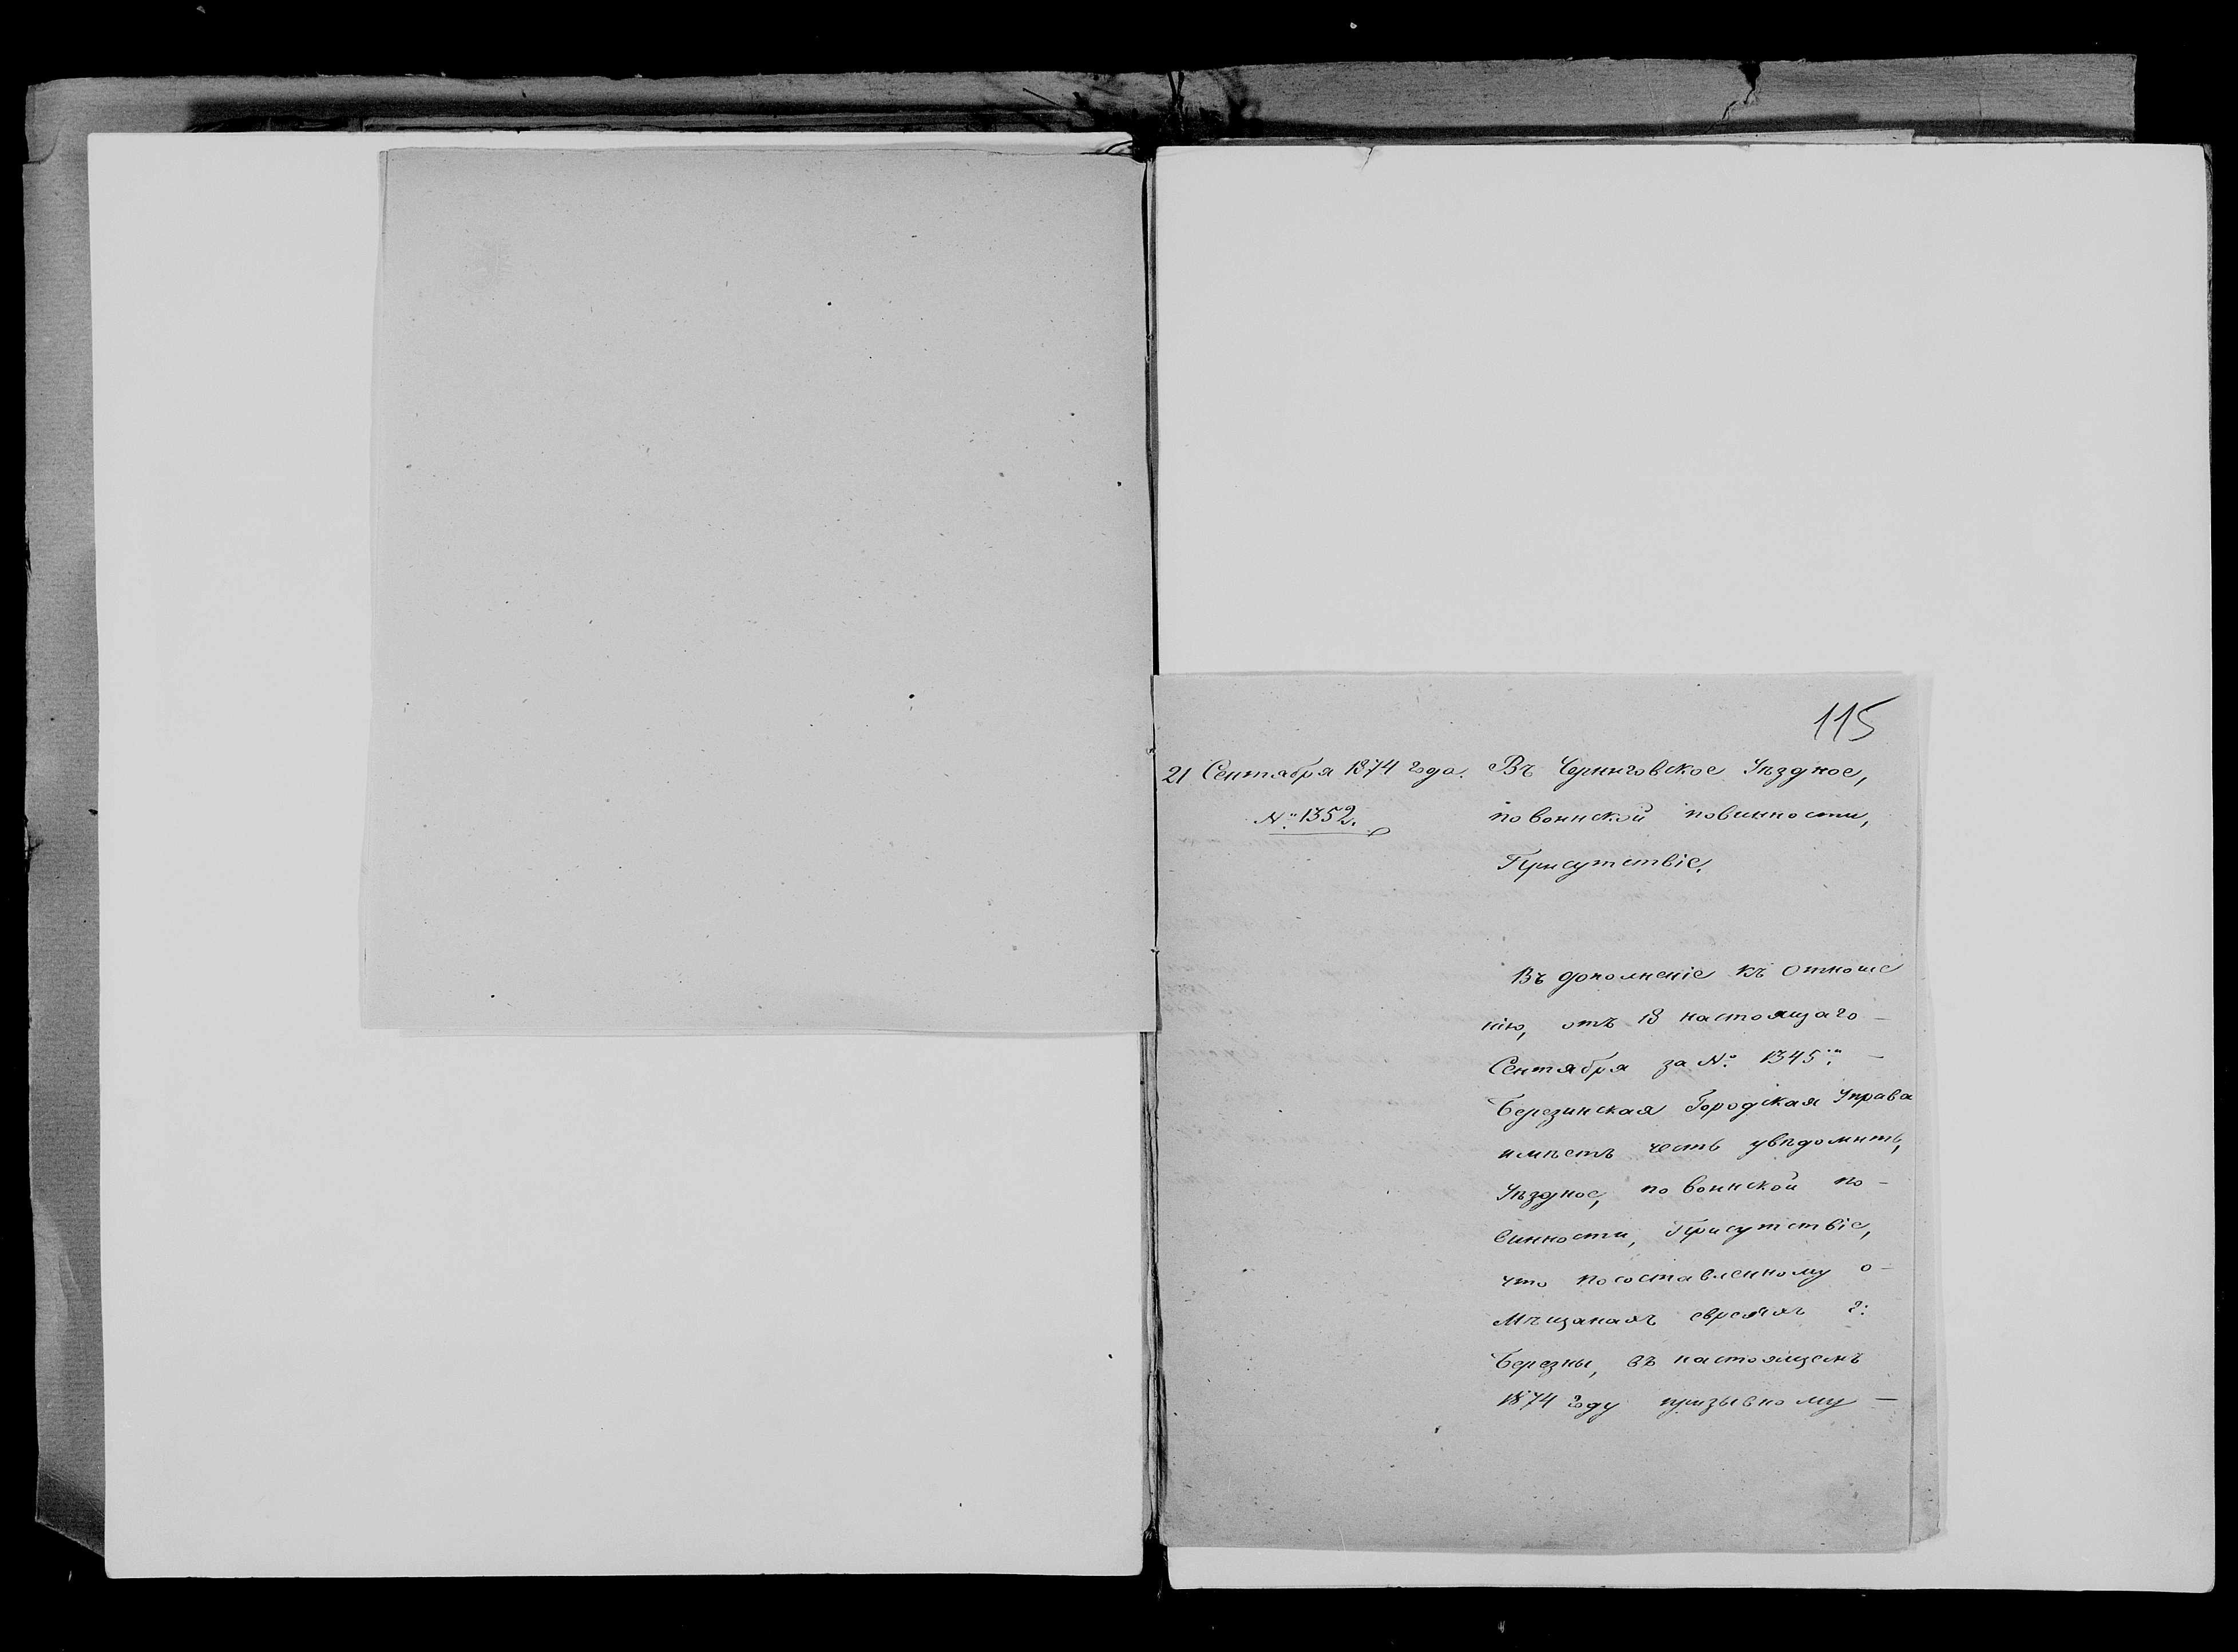 115
21 Сентября 1874 года.
№ 1352.
Въ Черниговское Уѣздное,
по воинской повинности,
Присутствіе.
Въ дополненіе къ отноше
нію, отъ 18 настоящаго –
Сентября за № 1345 –
Березинская Городская Управа
имѣетъ честь увѣдомить,
Уѣздное, по воинской по –
винности, Присутствіе,
что по составленному о –
мѣщанахъ евреяхъ г:
Березны, въ настоящемъ
1874 году призывному –